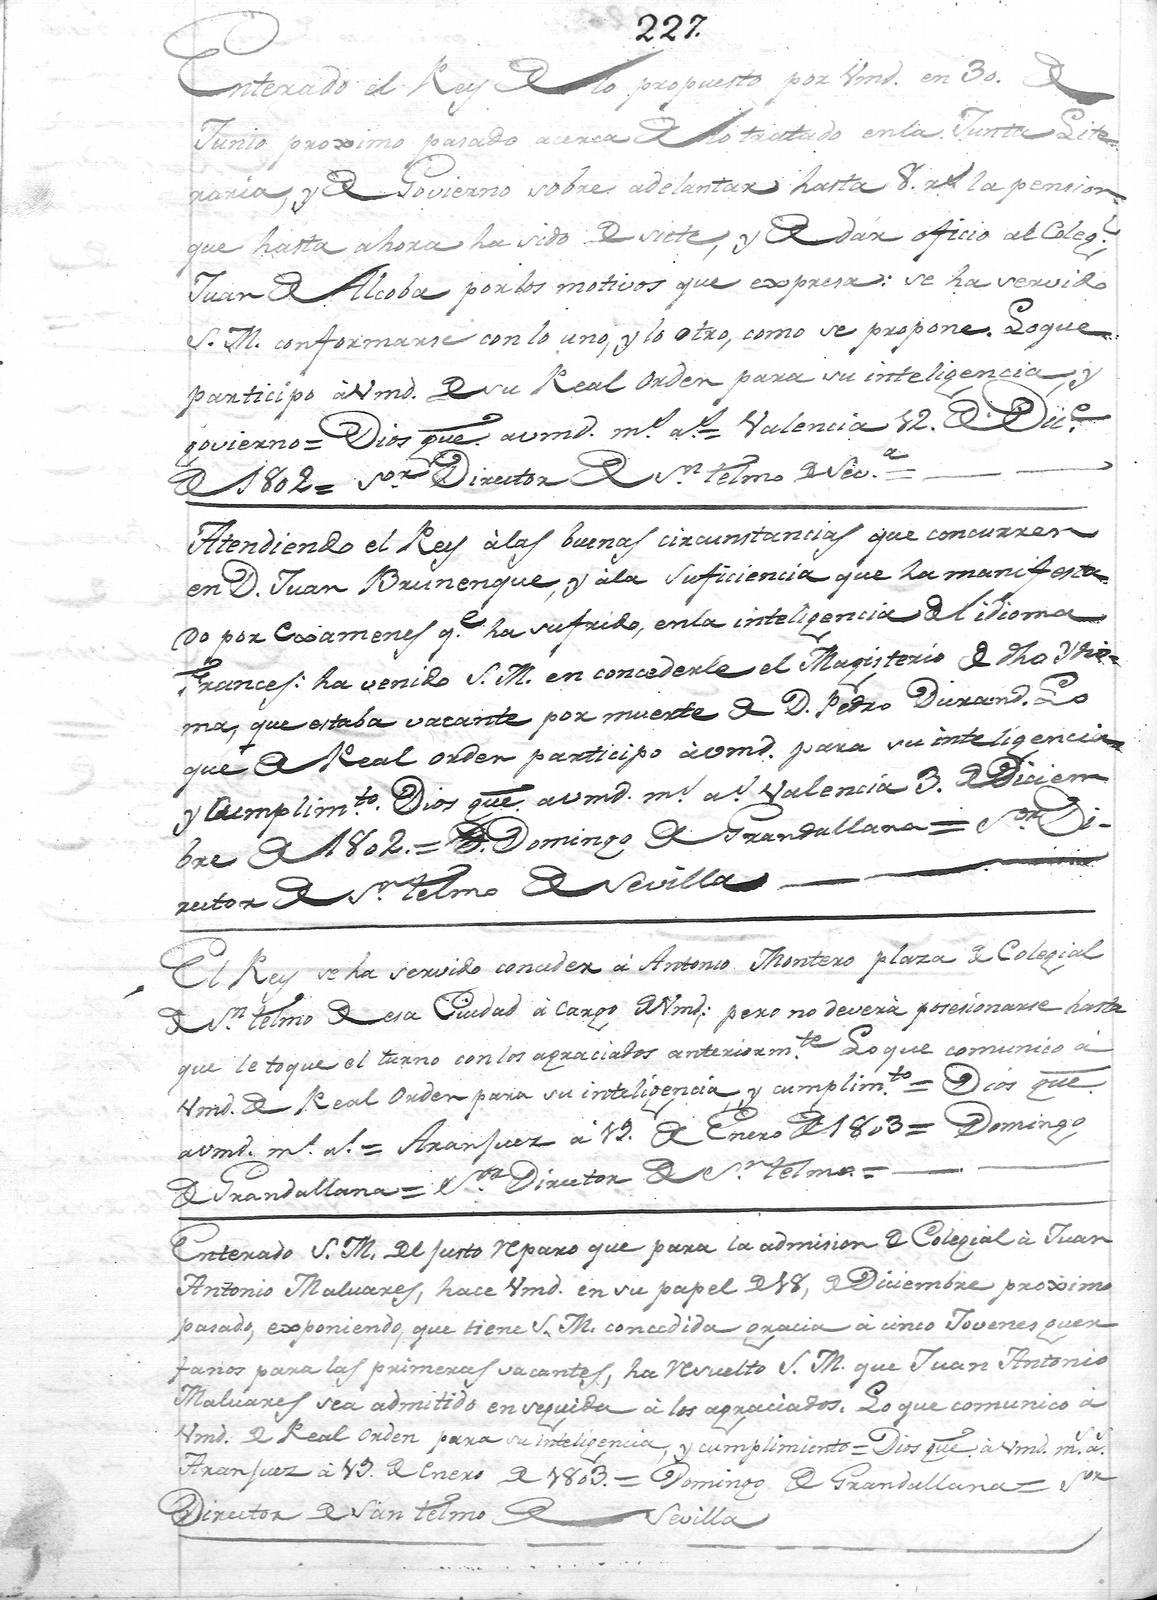 227.
Enterado el Rey de lo propuesto por Vmd. en 30. de
Junio proximo pasado acerca de lo tratado en la Junta Lite-
raria, y de Govierno sobre adelantar hasta 8. rs la pension
que hasta ahora ha sido de siete, y de dár oficio al Coleg.l
Juan de Alcoba por los motivos que expresa: se ha servido
S. M. conformarse con lo uno, y lo otro, como se propone. Lo que
participo à Vmd. de su Real Orden para su inteligencia, y
govierno = Dios gue. a vmd. ms. as. = Valencia 12. de Dic.e
de 1802 = Sor. Director de Sn. telmo de Sev.a =
Atendiendo el Rey à las buenas circunstancias que concurren
en D. Juan Brunenque, y àla suficiencia que ha manifesta-
do por Examenes q.e ha sufrido, en la inteligencia del idioma
Frances: ha venido S. M. en concederle el Magisterio de dho Ydio-
ma, que estaba vacante por muerte de D. Pedro Durand. Lo
que de Real orden participo à vmd. para su inteligencia
y Cumplim.to. Dios gue. a vmd. ms. as. Valencia 3. de Diciem
bre de 1802. = D. Domingo de Grandallana = Sor. Di-
rector de Sn. telmo de Sevilla
El Rey se ha servido conceder à Antonio Montero plaza de Colegial
de Sn. telmo de esa Ciudad à cargo de Vmd: pero no deverà posesionarse hasta
que le toque el turno con los agraciados anteriorm.te Lo que comunico à
Vmd. de Real Orden para su inteligencia, y cumplim.to = Dios gue.
a vmd. ms. as. = Aranjuez à 19. de Enero de 1803 = Domingo
de Grandallana = Sor. Director de Sn. telmo. =
Enterado S. M. del justo reparo que para la admision de Colegial à Juan
Antonio Malvares, hace Vmd. en su papel de 18, de Diciembre proximo
pasado, exponiendo, que tiene S. M. concedida gracia à cinco Jovenes guer
fanos para las primeras vacantes, ha resuelto S. M. que Juan Antonio
Malvares sea admitido en seguida à los agraciados. Lo que comunico à
Vmd. de Real Orden para su inteligencia, y cumplimiento = Dios gue. à Vmd. ms. as.
Aranjuez à 19. de Enero de 1803. = Domingo de Grandallana = Sor
Director de San telmo de Sevilla